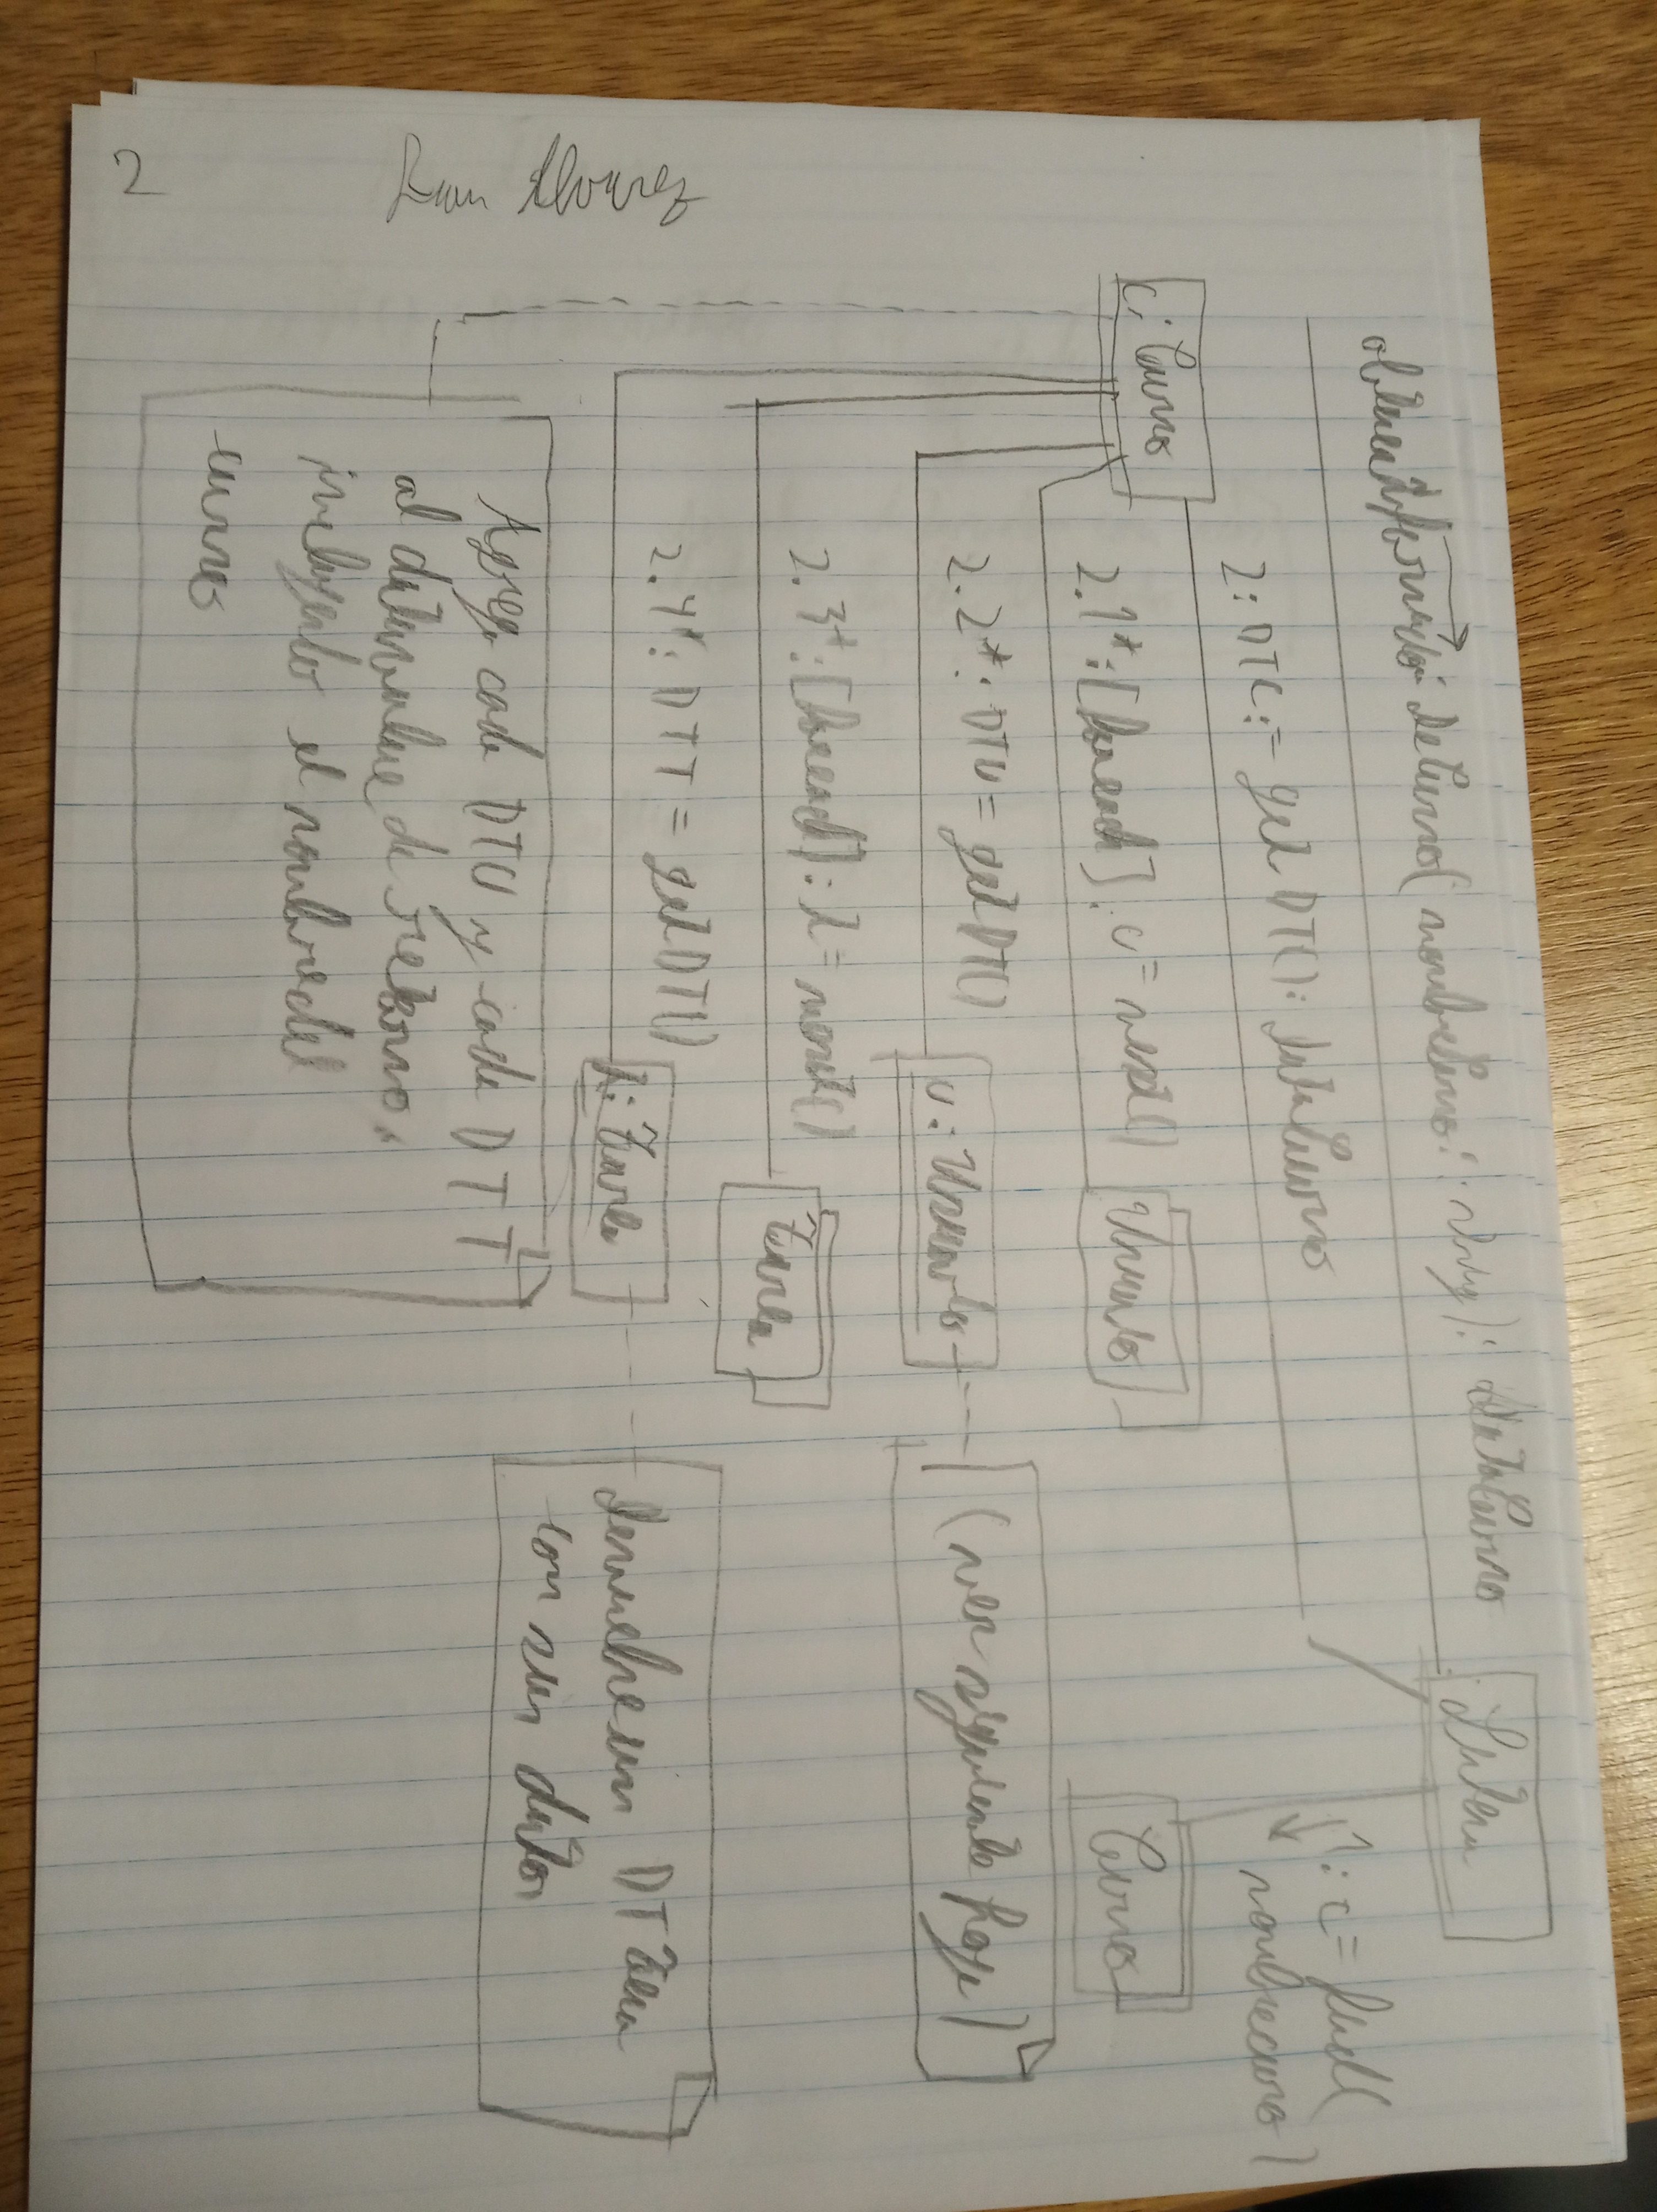 obtenerInformaciónDeCurso(nombreCurso: string): DataCurso
Sistema
1: c = find(
nombrecurso)
2: DTC := getDT(): DataCurso
c: Curso
2.1*: [foreach]: u = next()
Usuario
Curso
2.2*: DTU = getDT()
u: Usuario
(ver siguiente hoja)
2.3*: [foreach]: t = next()
Tarea
2.4*: DTT = getDT()
t: Tarea
Devuelve un DTTarea
con sus datos
Agrega cada DTU y cada DTT
al datavalue de retorno,
incluyendo el nombre del
curso
2
Alvarez